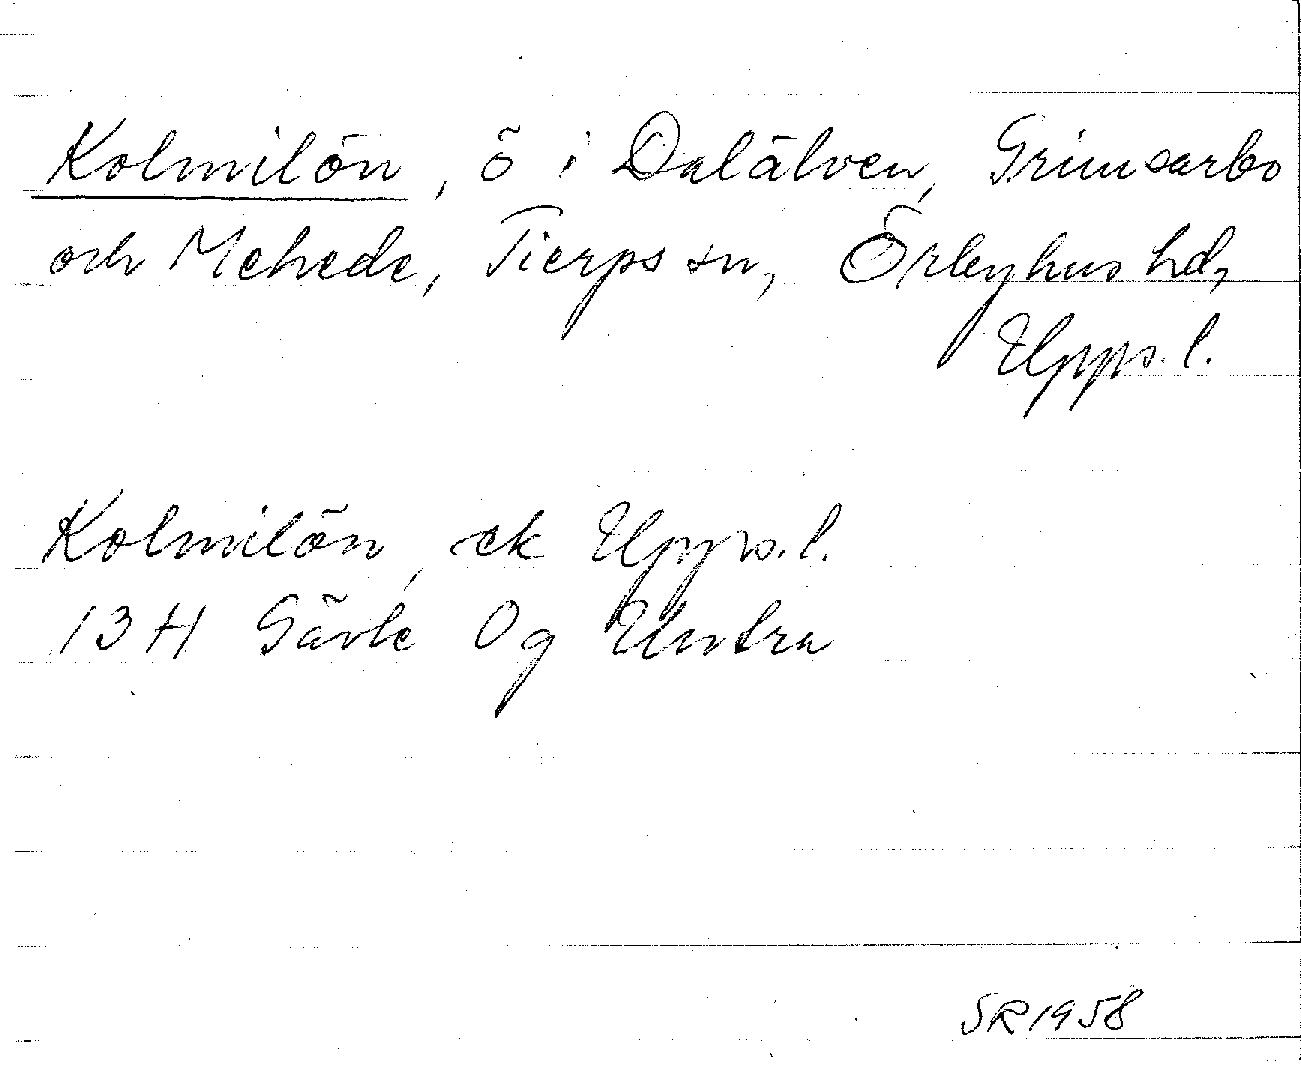 Kolmilön, ö i Dalälven, Grimsarbo
och Mehede, Tierps sn, Örbyhus hd,
Upps. l.
Kolmilön, ek Upps. l.
13 H Gävle 0 g Untra
SR 1958